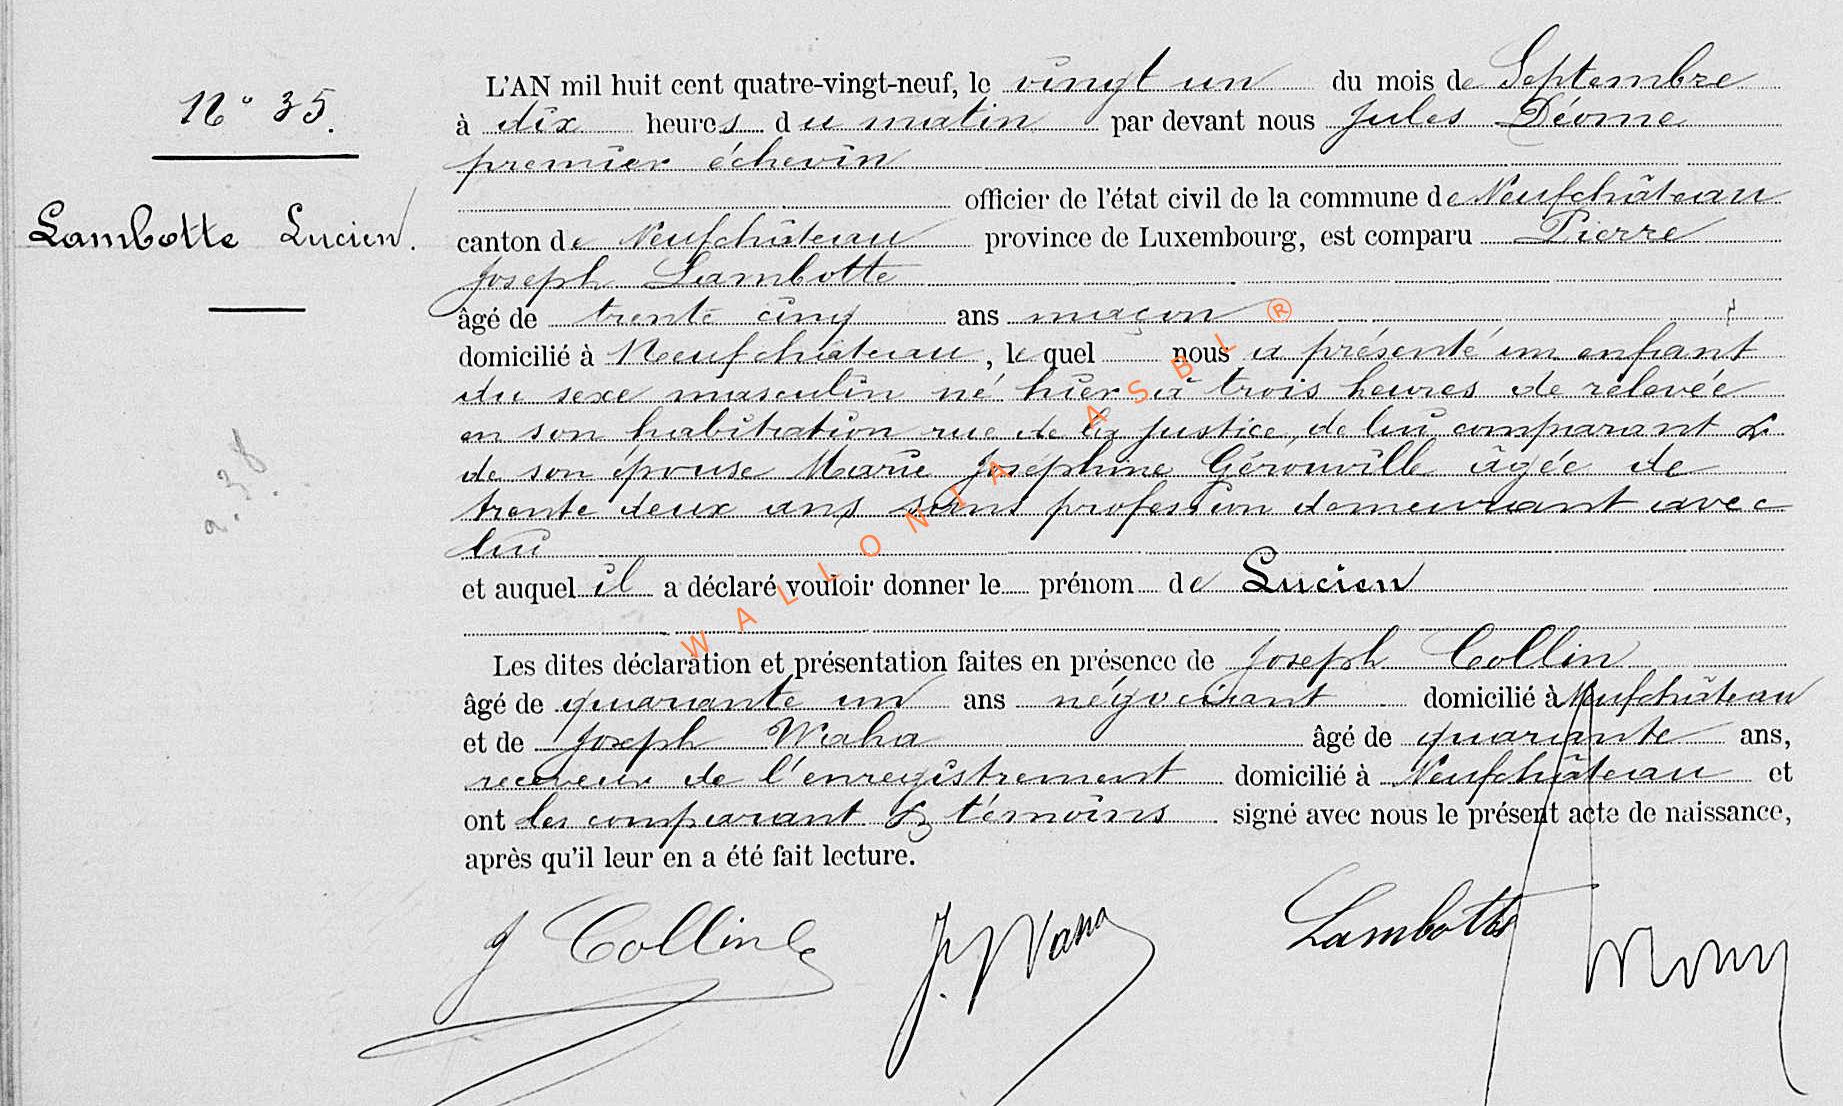 N° 35.
Lambotte Lucien.
a. 38
L'AN mil huit cent quatre-vingt-neuf, le vingt un du mois de Septembre
à dix heures du matin par devant nous Jules Déome
premier échevin
officier de l'état civil de la commune de Neufchâteau
canton de Neufchâteau province de Luxembourg, est comparu Pierre
Joseph Lambotte
âgé de trente cinq ans maçon
domicilié à Neufchâteau, lequel nous a présenté un enfant
du sexe masculin né hier à trois heures de relevée
en son habitation rue de la Justice, de lui comparant &
de son épouse Marie Joséphine Gérouville âgée de
trente deux ans sans profession demeurant avec
lui
et auquel il a déclaré vouloir donner le prénom de Lucien
Les dites déclaration et présentation faites en présence de Joseph Collin
âgé de quarante un ans négociant domicilié à Neufchâteau
et de Joseph Waha âgé de quarante ans,
receveur de l'enregistrement domicilié à Neufchâteau et
ont les comparant & témoins signé avec nous le présent acte de naissance,
après qu'il leur en a été fait lecture.
J Collin J. Waha Lambotte
WALLONIA ASBL ®